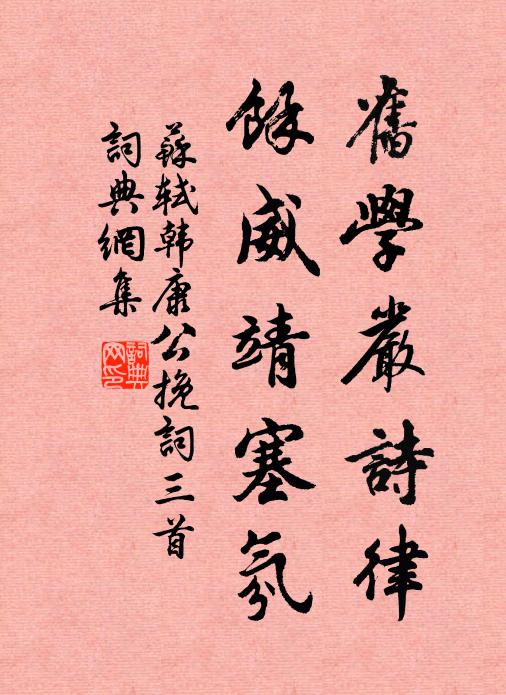 舊學嚴詩律
餘威靖塞氛
蘇軾韓康公挽詞三首
詞典網集
詞典
网印